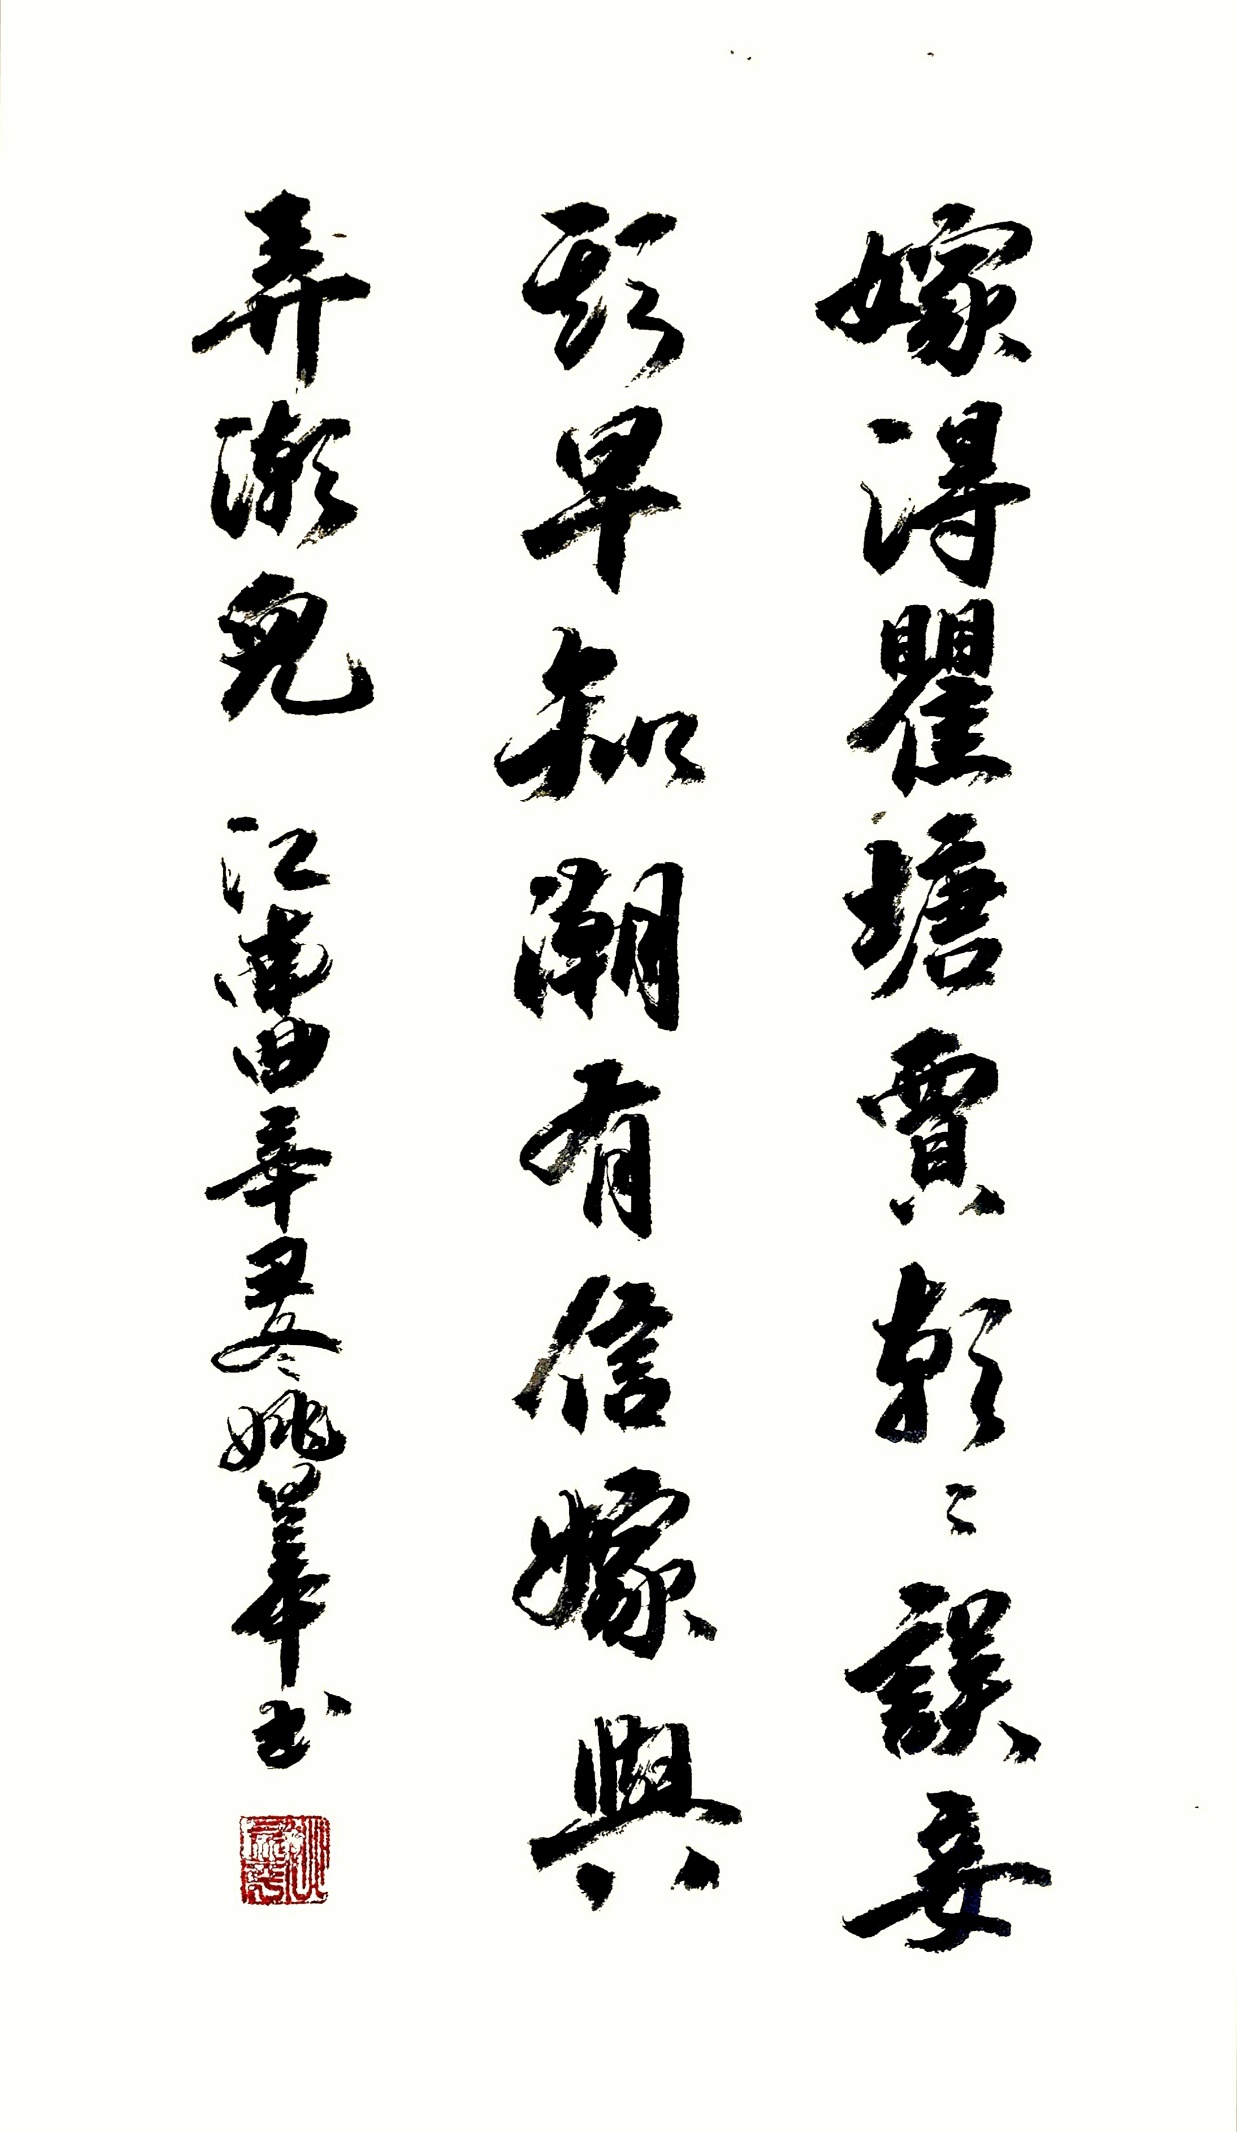 嫁得瞿塘賈朝々誤妾
期早知潮有信嫁與
弄潮兒 江南曲辛丑冬姚華书